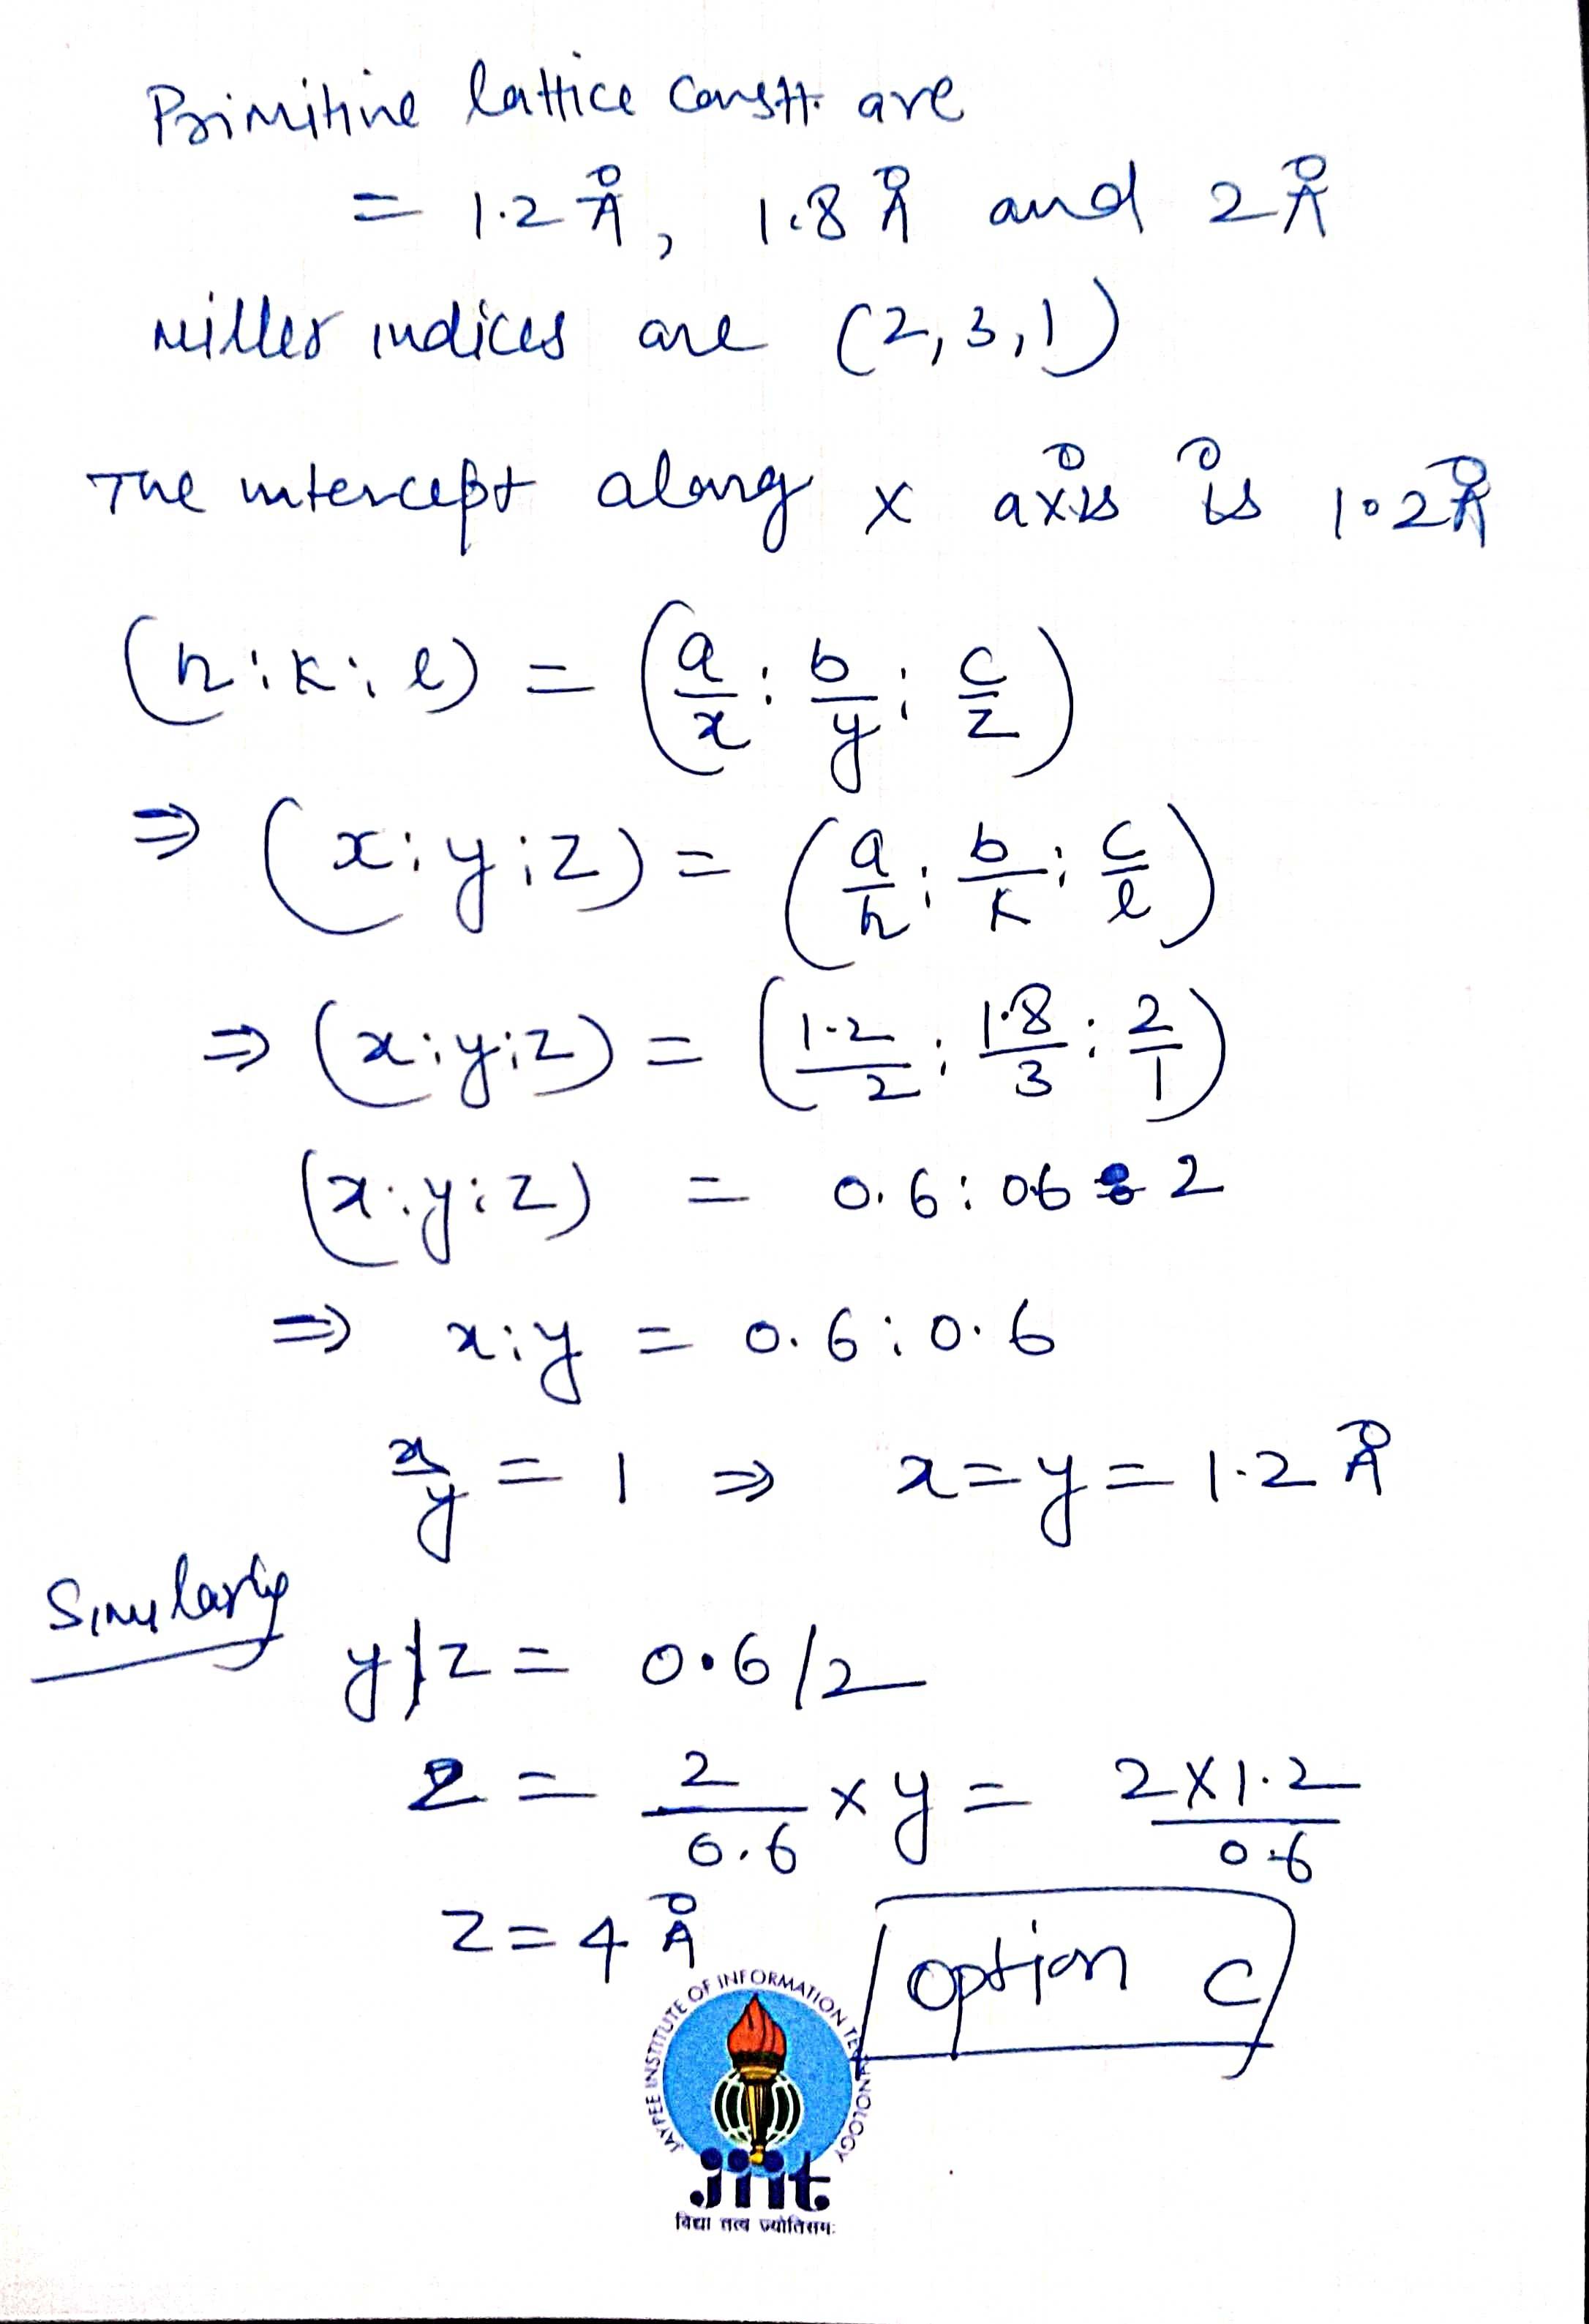 Primitive lattice constt. are
= 1.2 Å, 1.8 Å and 2 Å
Miller indices are (2,3,1)
The intercept along x axis is 1.2 Å
(h:k:l) = (a/x : b/y : c/z)
⇒ (x:y:z) = (a/h : b/k : c/l)
⇒ (x:y:z) = (1.2/2 : 1.8/3 : 2/1)
(x:y:z) = 0.6:06:2
⇒ x:y = 0.6:0.6
x/y = 1 ⇒ x=y=1.2 Å
Similarly
y/z = 0.6/2
z = 2/0.6 × y = 2×1.2/0.6
z=4 Å
Option C
JAYPEE INSTITUTE OF INFORMATION TECHNOLOGY
jiit
विद्या तत्व ज्योतिसमः